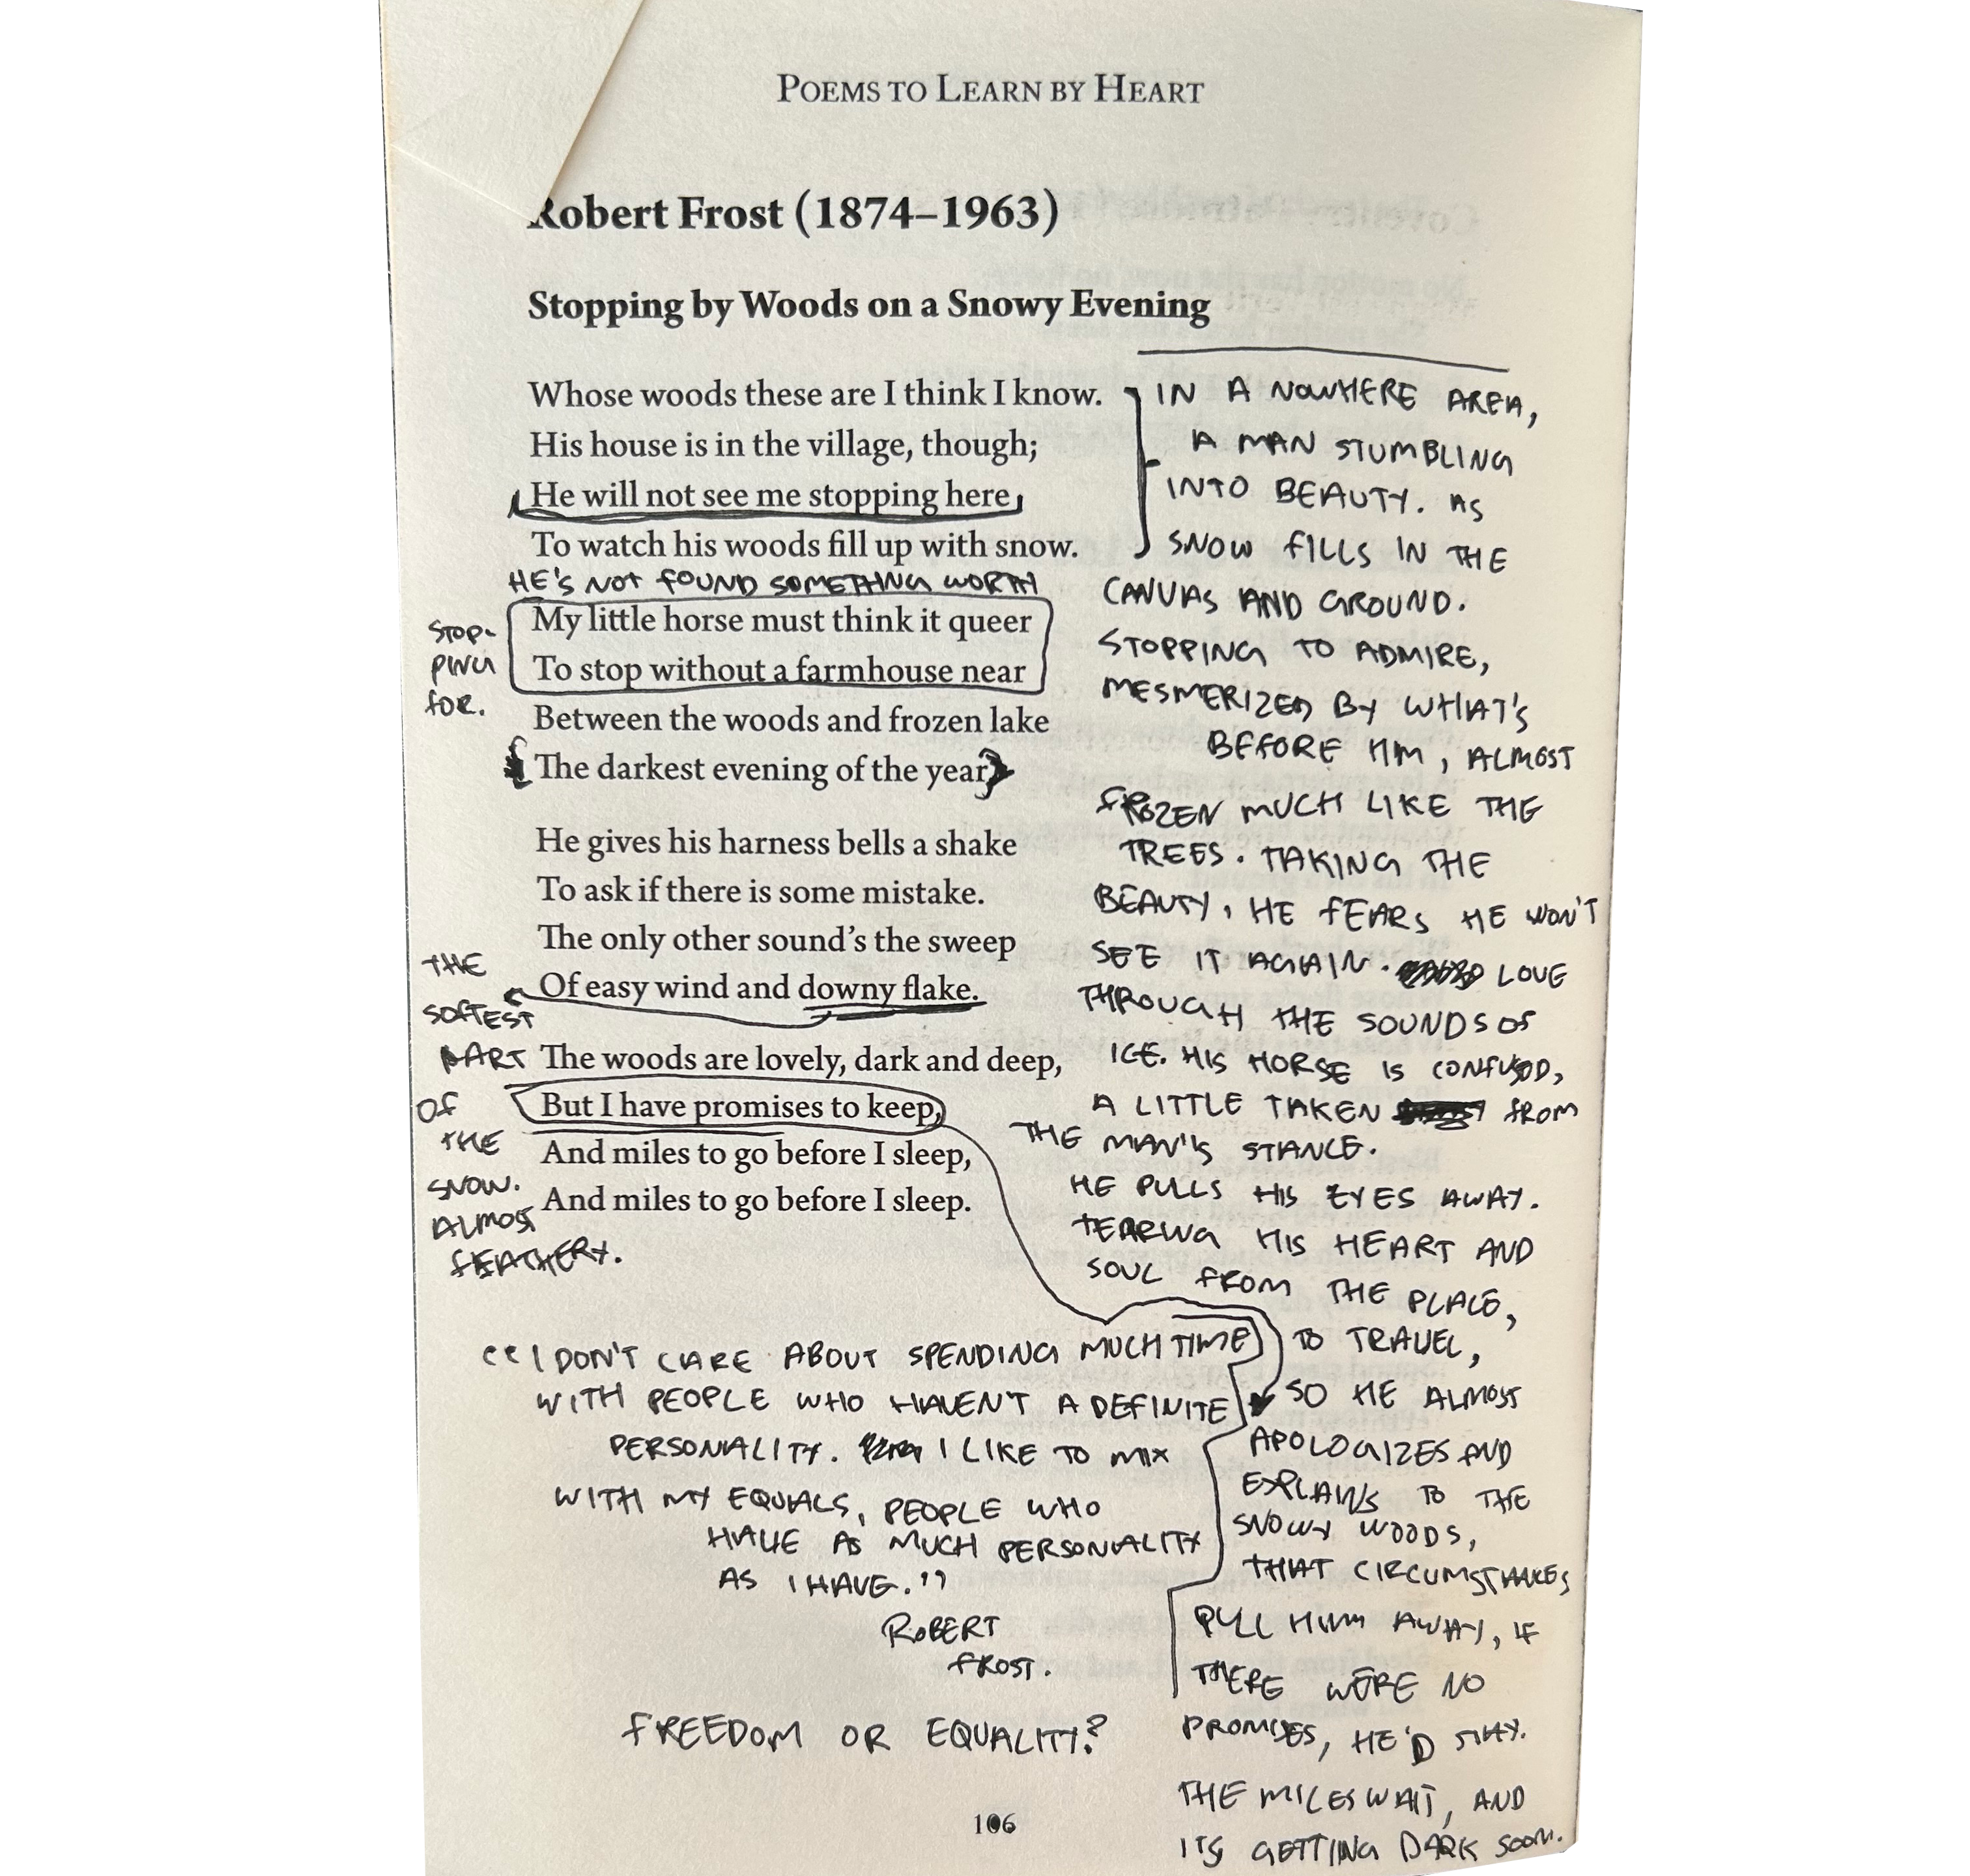 POEMS TO LEARN BY HEART
Robert Frost (1874–1963)
Stopping by Woods on a Snowy Evening
Whose woods these are I think I know.
His house is in the village, though;
He will not see me stopping here
To watch his woods fill up with snow.
HE'S NOT FOUND SOMETHING WORTH
STOP-
PING
FOR.
My little horse must think it queer
To stop without a farmhouse near
Between the woods and frozen lake
The darkest evening of the year.
He gives his harness bells a shake
To ask if there is some mistake.
The only other sound's the sweep
Of easy wind and downy flake.
THE
SOFTEST
PART
OF
THE
SNOW.
ALMOST
FEATHERY.
The woods are lovely, dark and deep,
But I have promises to keep,
And miles to go before I sleep,
And miles to go before I sleep.
IN A NOWHERE AREA,
A MAN STUMBLING
INTO BEAUTY. AS
SNOW FILLS IN THE
CANVAS AND GROUND.
STOPPING TO ADMIRE,
MESMERIZED BY WHAT'S
BEFORE HIM, ALMOST
FROZEN MUCH LIKE THE
TREES. TAKING THE
BEAUTY, HE FEARS HE WON'T
SEE IT AGAIN. LOVE
THROUGH THE SOUNDS OF
ICE. HIS HORSE IS CONFUSED,
A LITTLE TAKEN FROM
THE MAN'S STANCE.
HE PULLS HIS EYES AWAY.
TEARING HIS HEART AND
SOUL FROM THE PLACE,
TO TRAVEL,
SO HE ALMOST
APOLOGIZES AND
EXPLAINS TO THE
SNOWY WOODS,
THAT CIRCUMSTANCES
PULL HIM AWAY, IF
THERE WERE NO
PROMISES, HE'D STAY.
THE MILES WAIT, AND
ITS GETTING DARK SOON.
"I DON'T CARE ABOUT SPENDING MUCH TIME
WITH PEOPLE WHO HAVEN'T A DEFINITE
PERSONALITY. I LIKE TO MIX
WITH MY EQUALS, PEOPLE WHO
HAVE AS MUCH PERSONALITY
AS I HAVE."
ROBERT
FROST.
FREEDOM OR EQUALITY?
106